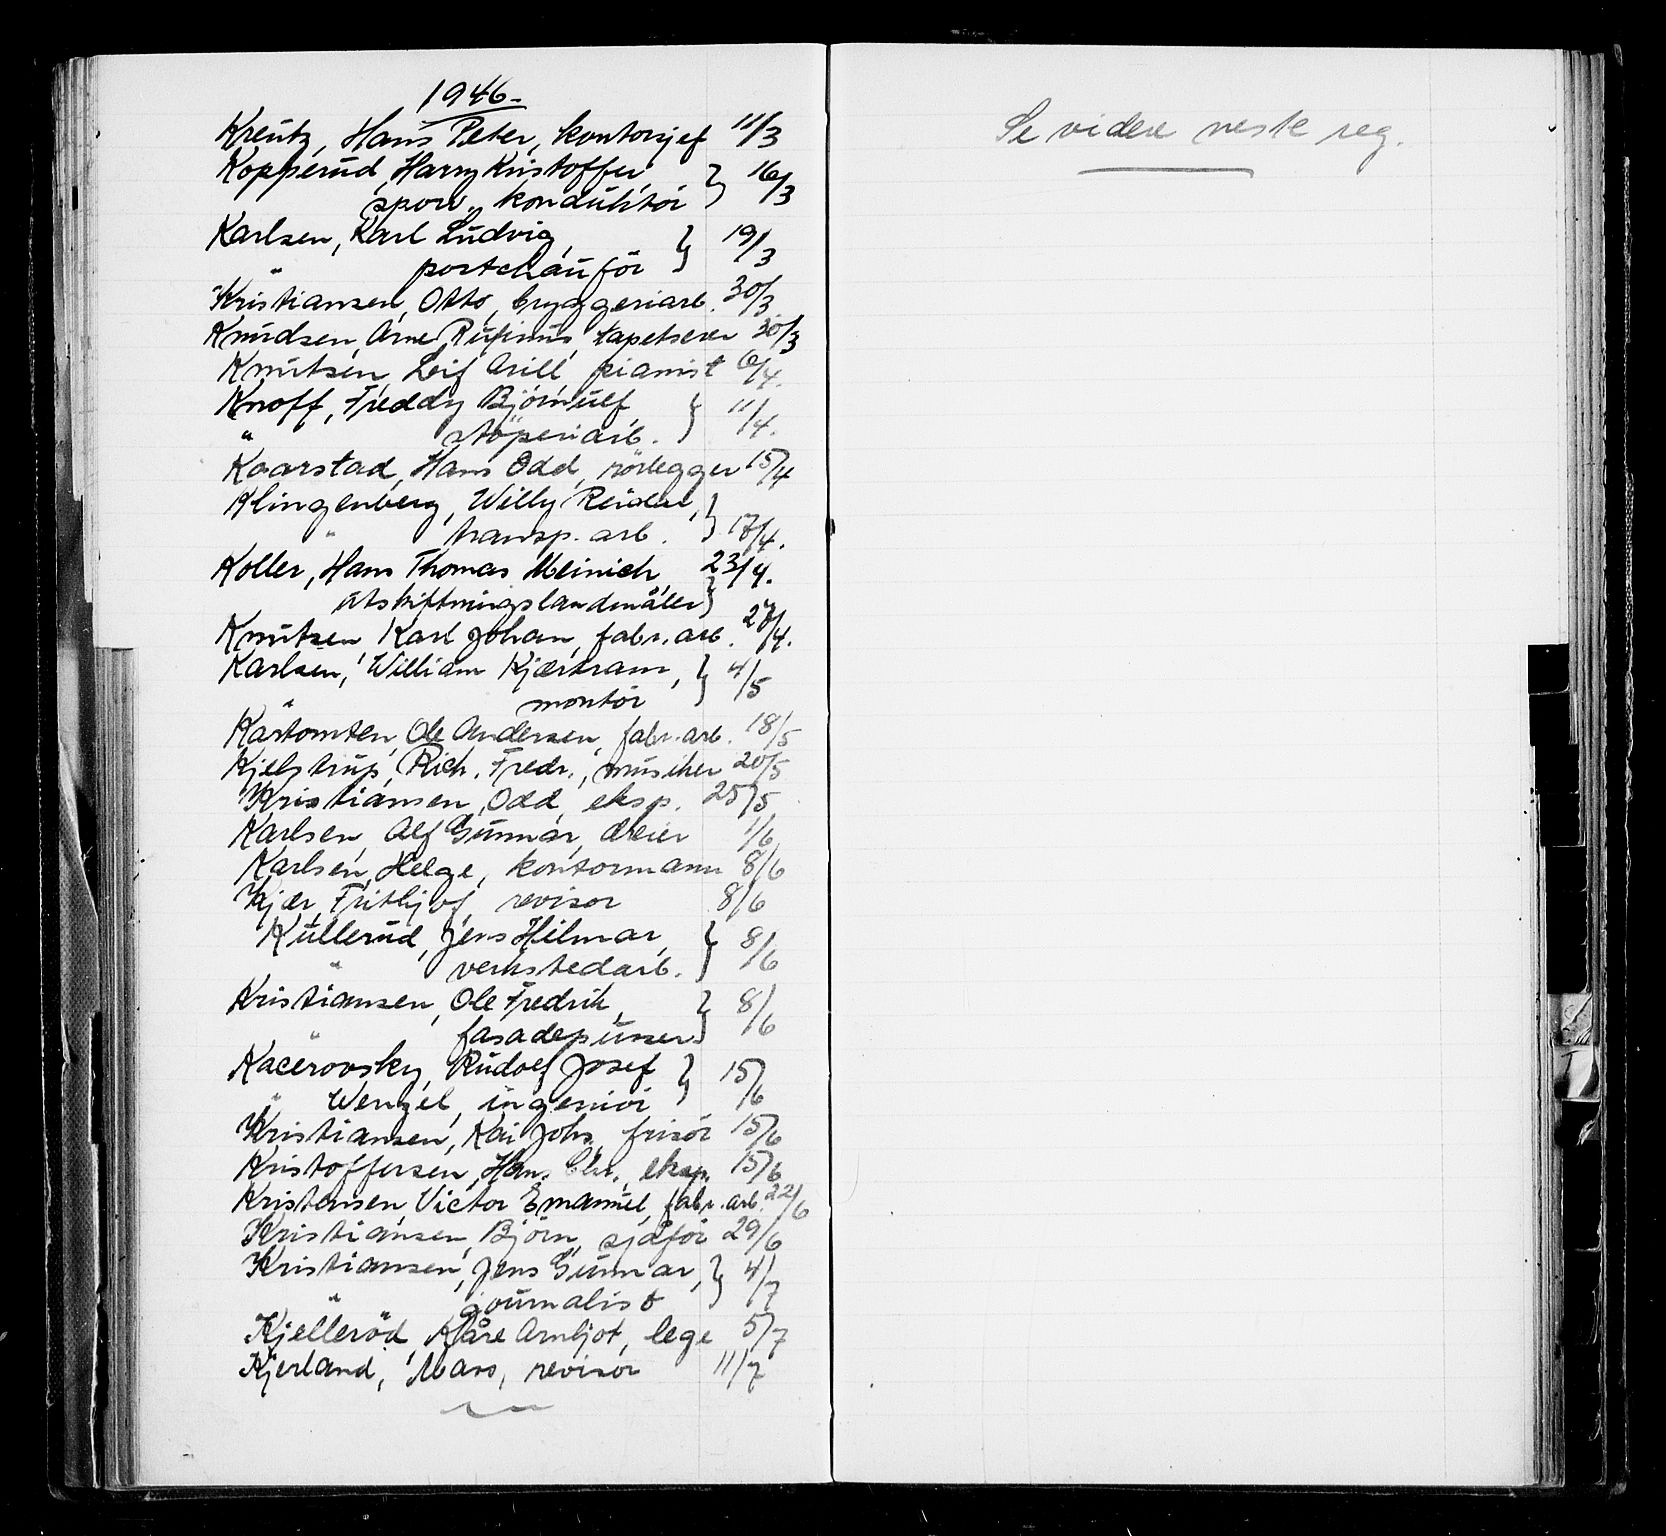 1946.
Kreutz, Hans Peter, kontorsjef 11/3
Kopperud, Harry Kristoffer } 16/3
sporv. konduktör
Karlsen, Karl Ludvig, } 19/3
" postchauför
Kristiansen, Otto, bryggeriarb. 30/3
Knudsen, Arne Rufinus, tapetserer 30/3
Knutsen, Leif Arill pianist 6/4.
Knoff, Freddy Björnulf } 11/4.
" stöperiarb.
Kaarstad, Hans Odd, rörlegger 15/4
Klingenberg, Willy Reidar, }
" transp. arb. 17/4.
Koller, Hans Thomas Meinich, 23/4.
utskiftningslandmåler }
Knutsen Karl Johan, fabr. arb. 27/4.
Karlsen, William Kjærtram, } 4/5
" montör
Kåstomten, Ole Andersen, fabr. arb. 18/5
Kjelstrup, Rich. Fredr., musiker 20/5
Kristiansen, Odd, eksp. 25/5
Karlsen, Alf Gunnar, dreier 1/6
Karlsen, Helge, kontormann 8/6
Kjær, Frithjof, revisor 8/6
Kullerud, Jens Hilmar, } 8/6
" verkstedarb.
Kristiansen, Ole Fredrik, } 8/6
" fasadepusser
Kacerovsky, Rudolf Josef } 15/6
" Wenzel, ingeniör
Kristiansen, Kai Johs., frisör 15/6
Kristoffersen, Hans Chr., eksp. 15/6
Kristensen Victor Emanuel, fabr. arb. 22/6
Kristiansen, Björn, sjåför 29/6
Kristiansen, Jens Gunnar, } 4/7
" " journalist
Kjelleröd, Kåre Arnljot, lege 5/7
Kjerland, Mass, revisor 11/7
Se videre neste reg.